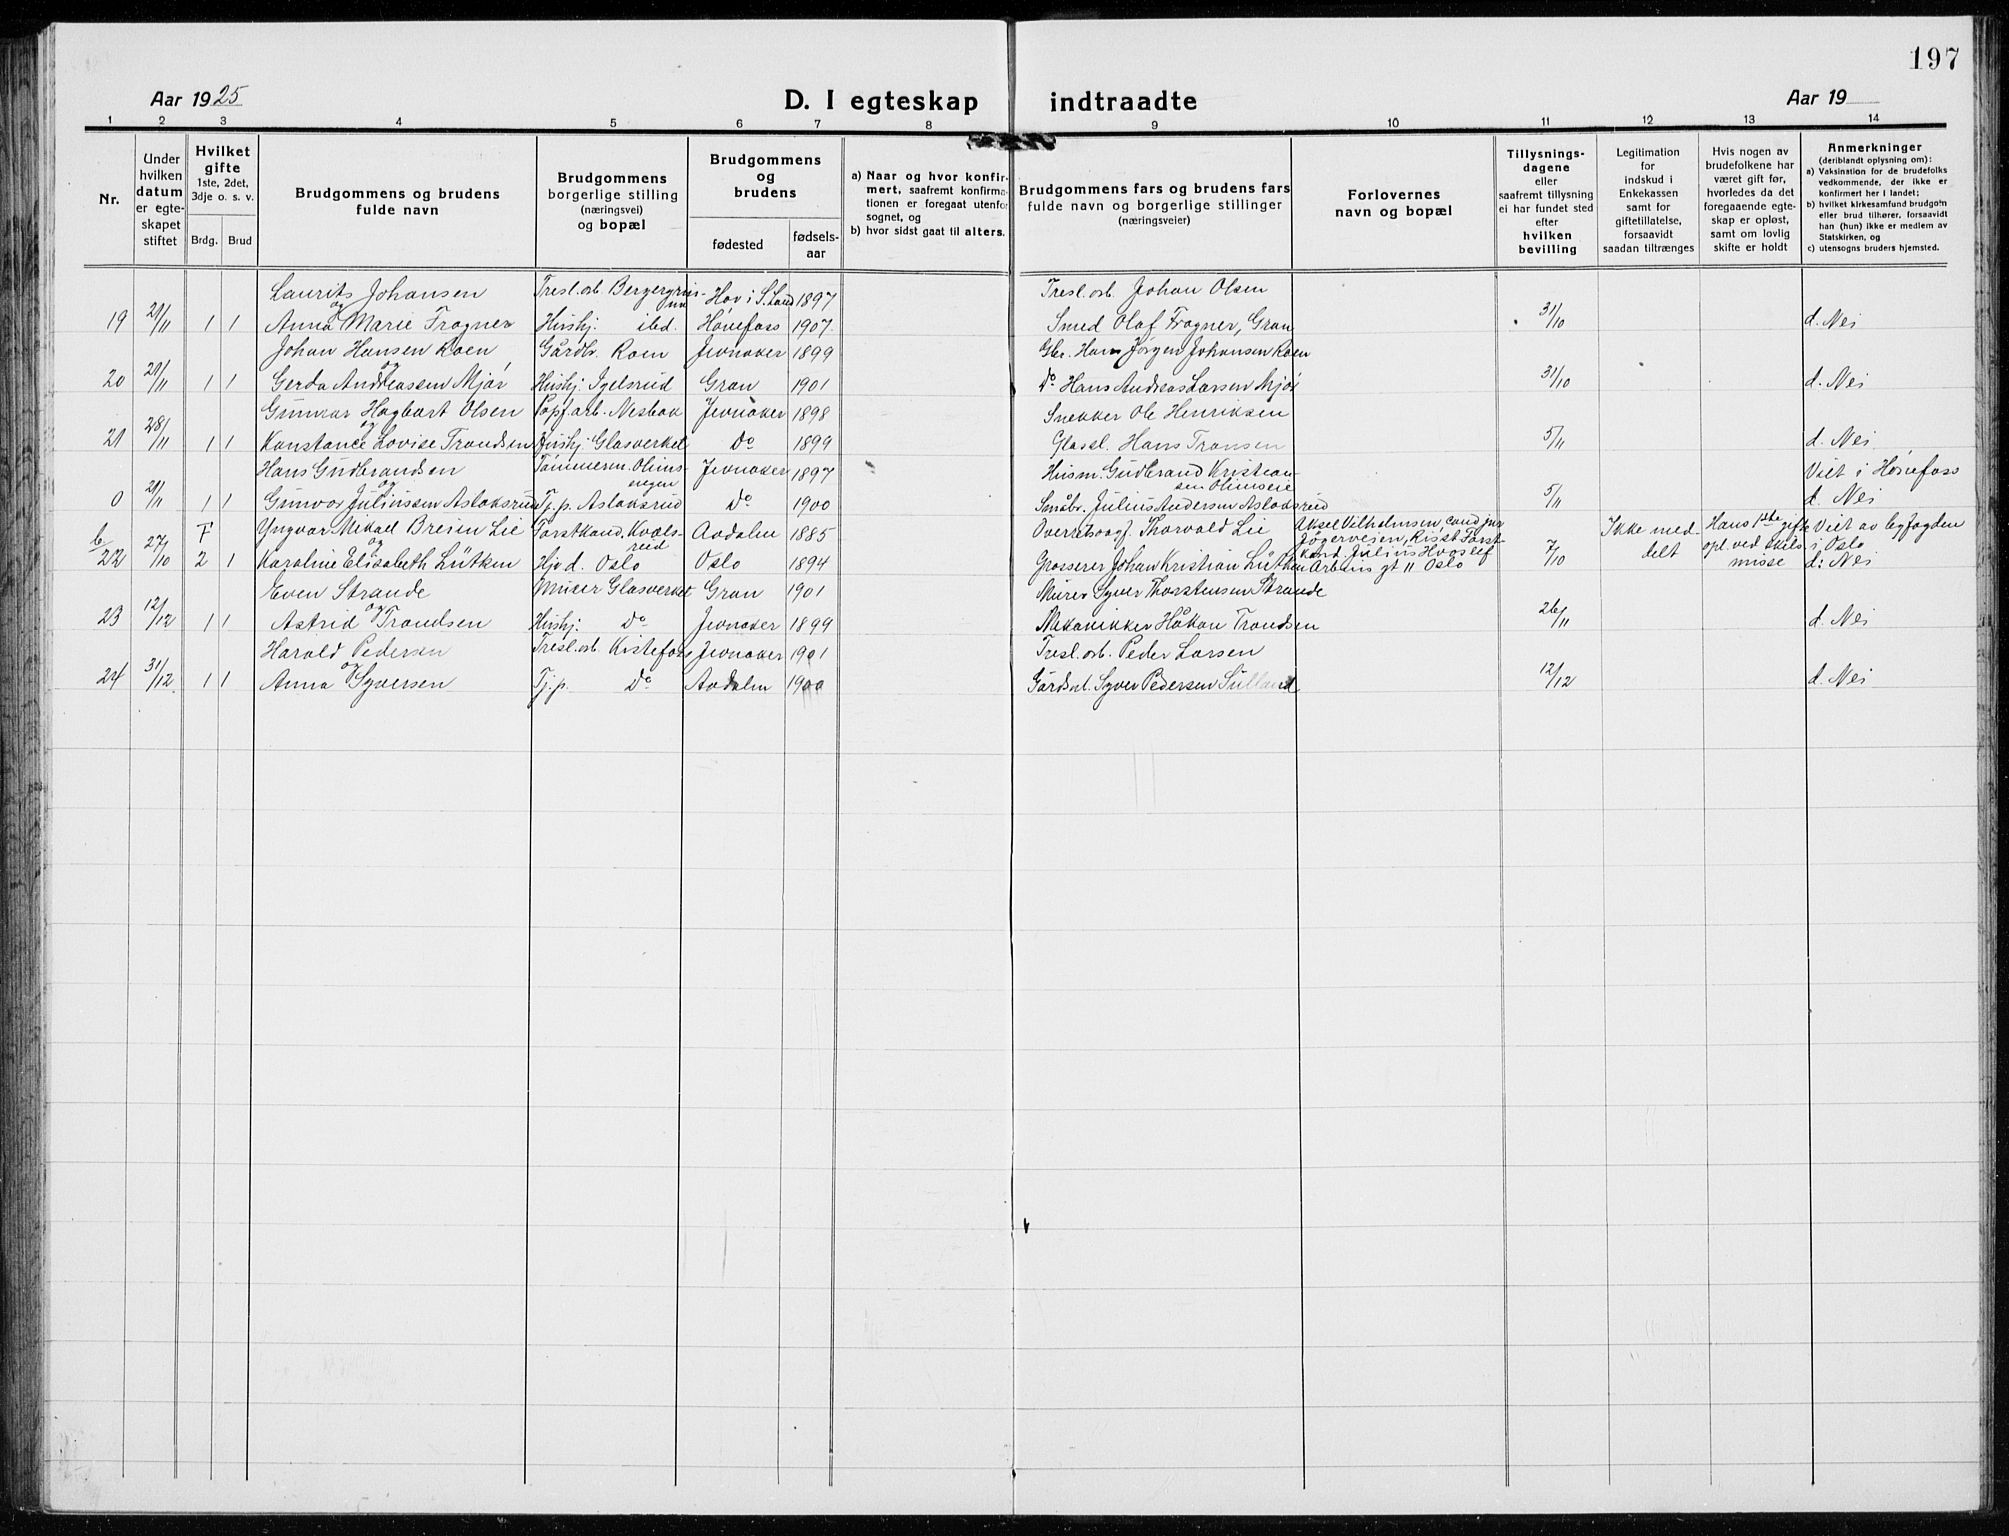 197
Aar 1925
D. I egteskap indtraadte
Aar 19
1 2 3 4 5 6 7 8 9 10 11 12 13 14
Nr.
Under hvilken datum er egteskapet stiftet
Hvilket gifte
1ste, 2det, 3dje o. s. v.
Brdg. Brud
Brudgommens og brudens fulde navn
Brudgommens borgerlige stilling (næringsvei) og bopæl
Brudgommens og brudens
fødested
fødselsaar
a) Naar og hvor konfirmert, saafremt konfirmationen er foregaat utenfor sognet, og
b) hvor sidst gaat til alters.
Brudgommens fars og brudens fars fulde navn og borgerlige stillinger (næringsveier)
Forlovernes navn og bopæl
Tillysningsdagene eller saafremt tillysning ei har fundet sted efter hvilken bevilling
Legitimation for indskud i Enkekassen samt for giftetillatelse, forsaavidt saadan tiltrænges
Hvis nogen av brudefolkene har været gift før, hvorledes da det foregaaende egteskap er opløst, samt om lovlig skifte er holdt
Anmerkninger (deriblandt oplysning om):
a) Vaksination for de brudefolks vedkommende, der ikke er konfirmert her i landet;
b) hvilket kirkesamfund brudgom eller brud tilhører, forsaavidt han (hun) ikke er medlem av Statskirken, og
c) utensogns bruders hjemsted.
Laurits Johansen Tresl.arb. Hov i S. Land 1897 Tresl.arb. Johan Olsen
19 21/11 1 1 og Anna Marie Frogner Hushj: ibd. Hønefoss 1907. Smed Olaf Frogner, Gran 31/10 d. Nei
Johan Hansen Roen Gårdbr. Roen Jevnaker 1899 Gbr. Hans Jørgen Johansen Roen
20 21/11 1 1 og Gerda Andreassen Mjør Hushj: Igelsrud Gran 1901 Do Hans Andreas Larsen Mjør 31/10 d. Nei
Gunnar Hagbart Olsen Papf.arb. Nesbak Jevnaker 1898 Snekker Ole Henriksen
21 28/11 1 1 og Konstance Lovise Trondsen Hushj: Glasverket Do 1899 Glasel. Hans Transen 5/11 d. Nei
Hans Gudbrandsen Tømmerm. Olimsvegen Jevnaker 1897 Husm. Gudbrand Kristiansen Olimseie Viet i Hønefoss
0 21/11 1 1 og Gunvor Juliussen Aslaksrud Tj. p. Aslaksrud Do 1900 Småbr. Julius Andersen Aslaksrud 5/11 d. Nei
b F Yngvar Mikael Breien Lie Forstkand. Kvalsrud Aadalen 1885 Overretssagf. Thorvald Lie Aksel Vilhelmsen, cand. jur Ikke meddelt Hans 1ste gifte opl. ved skilsmisse Viet av byfogden i Oslo
22 27/10 2 1 og Karoline Elisabeth Lütken Hjv. d. Oslo Oslo 1894 Grosserer Johan Kristian Lütken Arbins gt 11 Oslo 7/10 d: Nei
Even Strande Murer Glasverket Gran 1901 Murer Syver Thorstensen Strande
23 12/12 1 1 og Astrid Trondsen Hushj: Do Jevnaker 1899 Mekanikker Håkon Trondsen 26/11 d. Nei
Harald Pedersen Tresl.arb. Kistefoss Jevnaker 1901 Tresl.arb. Peder Larsen
24 31/12 1 1 og Anna Syversen Tj. p. Do Aadalen 1900 Gårdbr. Syver Pedersen Sulland 12/12 d. Nei